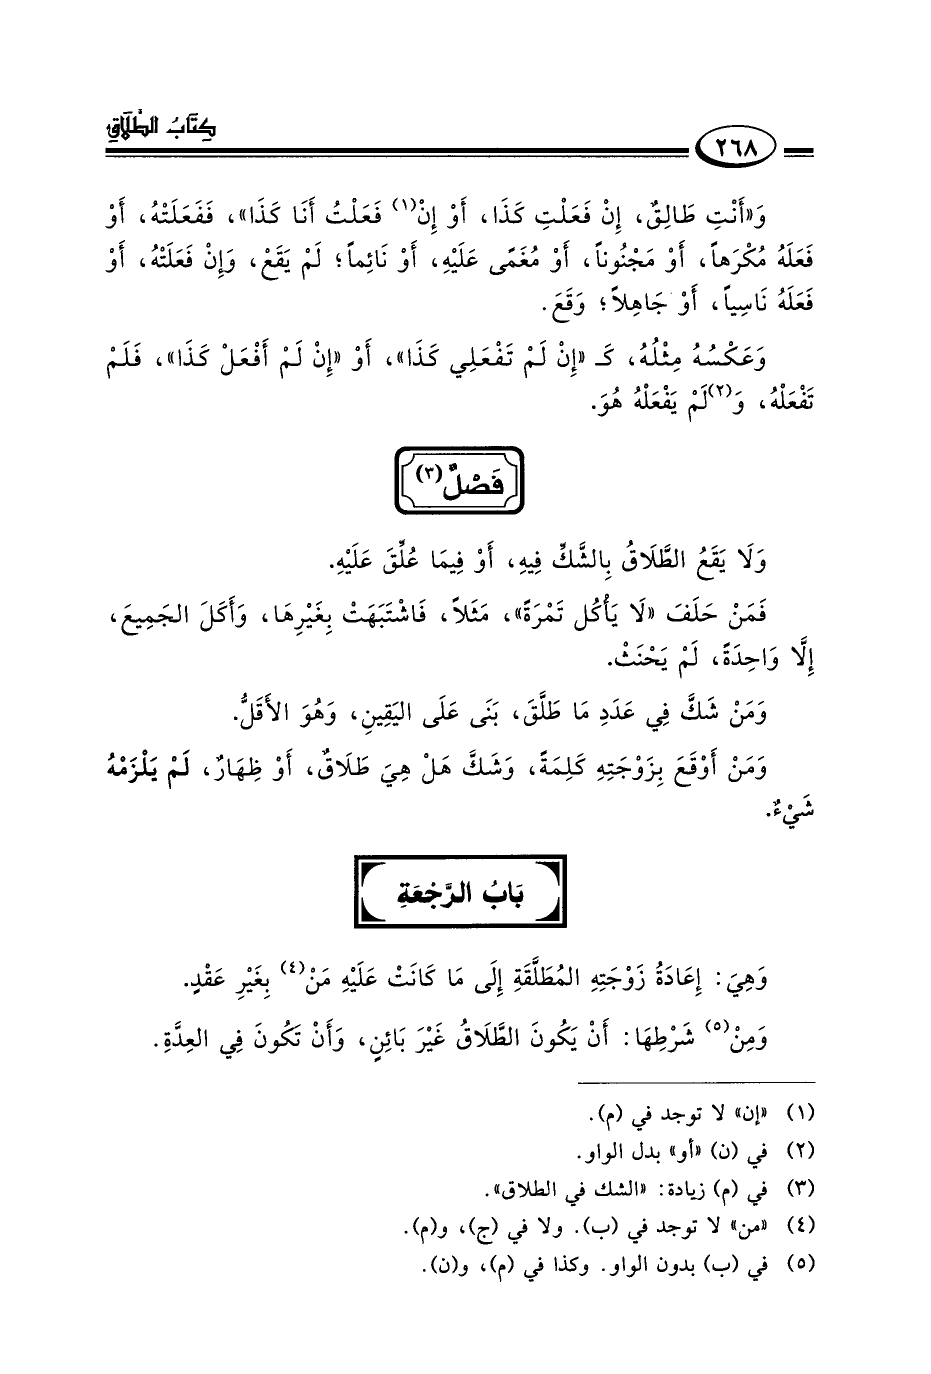 كِتَابُ الطَّلَاقِ
٢٦٨
وَ«أَنْتِ طَالِقٌ، إِنْ فَعَلْتِ كَذَا، أَوْ إِنْ(١) فَعَلْتُ أَنَا كَذَا»، فَفَعَلَتْهُ، أَوْ
فَعَلَهُ مُكْرَهاً، أَوْ مَجْنُوناً، أَوْ مُغَمًى عَلَيْهِ، أَوْ نَائِماً؛ لَمْ يَقَعْ، وَإِنْ فَعَلَتْهُ، أَوْ
فَعَلَهُ نَاسِياً، أَوْ جَاهِلاً؛ وَقَعَ.
وَعَكْسُهُ مِثْلُهُ، كَـ «إِنْ لَمْ تَفْعَلِي كَذَا»، أَوْ «إِنْ لَمْ أَفْعَلْ كَذَا»، فَلَمْ
تَفْعَلْهُ، وَ(٢)لَمْ يَفْعَلْهُ هُوَ.
فَصْلٌ(٣)
وَلَا يَقَعُ الطَّلَاقُ بِالشَّكِّ فِيهِ، أَوْ فِيمَا عُلِّقَ عَلَيْهِ.
فَمَنْ حَلَفَ «لَا يَأْكُل تَمْرَةً»، مَثَلاً، فَاشْتَبَهَتْ بِغَيْرِهَا، وَأَكَلَ الجَمِيعَ،
إِلَّا وَاحِدَةً، لَمْ يَحْنَثْ.
وَمَنْ شَكَّ فِي عَدَدِ مَا طَلَّقَ، بَنَى عَلَى اليَقِينِ، وَهُوَ الأَقَلُّ.
وَمَنْ أَوْقَعَ بِزَوْجَتِهِ كَلِمَةً، وَشَكَّ هَلْ هِيَ طَلَاقٌ، أَوْ ظِهَارٌ، لَمْ يَلْزَمْهُ
شَيْءٌ.
بَابُ الرَّجْعَةِ
وَهِيَ: إِعَادَةُ زَوْجَتِهِ المُطَلَّقَةِ إِلَى مَا كَانَتْ عَلَيْهِ مَنْ(٤) بِغَيْرِ عَقْدٍ.
وَمِنْ(٥) شَرْطِهَا: أَنْ يَكُونَ الطَّلَاقُ غَيْرَ بَائِنٍ، وَأَنْ تَكُونَ فِي العِدَّةِ.
(١) «إن» لا توجد في (م).
(٢) في (ن) «أو» بدل الواو.
(٣) في (م) زيادة: «الشك في الطلاق».
(٤) «من» لا توجد في (ب). ولا في (ج)، و(م).
(٥) في (ب) بدون الواو. وكذا في (م)، و(ن).